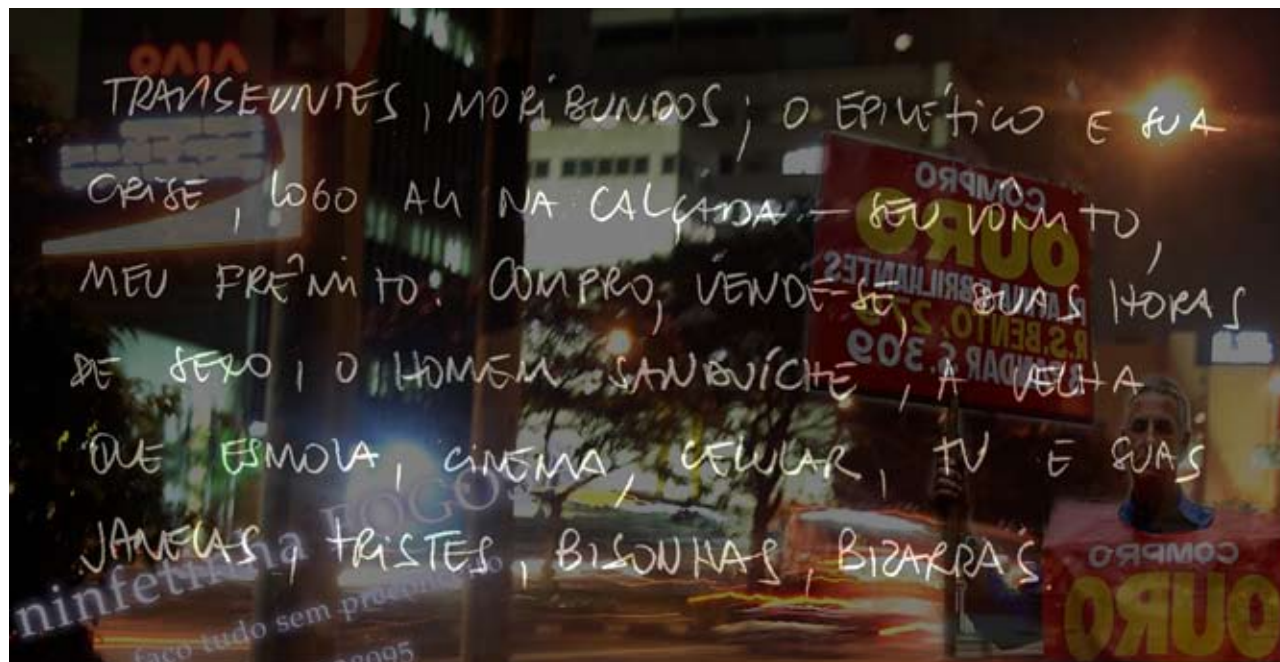 VIVO
TRANSEUNTES, MORIBUNDOS; O EPILÉTICO E SUA
CRISE, LOGO ALI NA CALÇADA – SEU VÔMITO,
MEU FRÊMITO. COMPRO, VENDE-SE, SUAS HORAS
DE SEXO, O HOMEM SANDUÍCHE, A VELHA
QUE ESMOLA, CINEMA, CELULAR, TV E SUAS
JANELAS, TRISTES, BISONHAS, BIZARRAS
COMPRO
OURO
PLATINA BRILHANTES
R.S. BENTO, 279
ANDAR S. 309
ninfetinha FOGOSA
faço tudo sem preconceito
8095
COMPRO
OURO